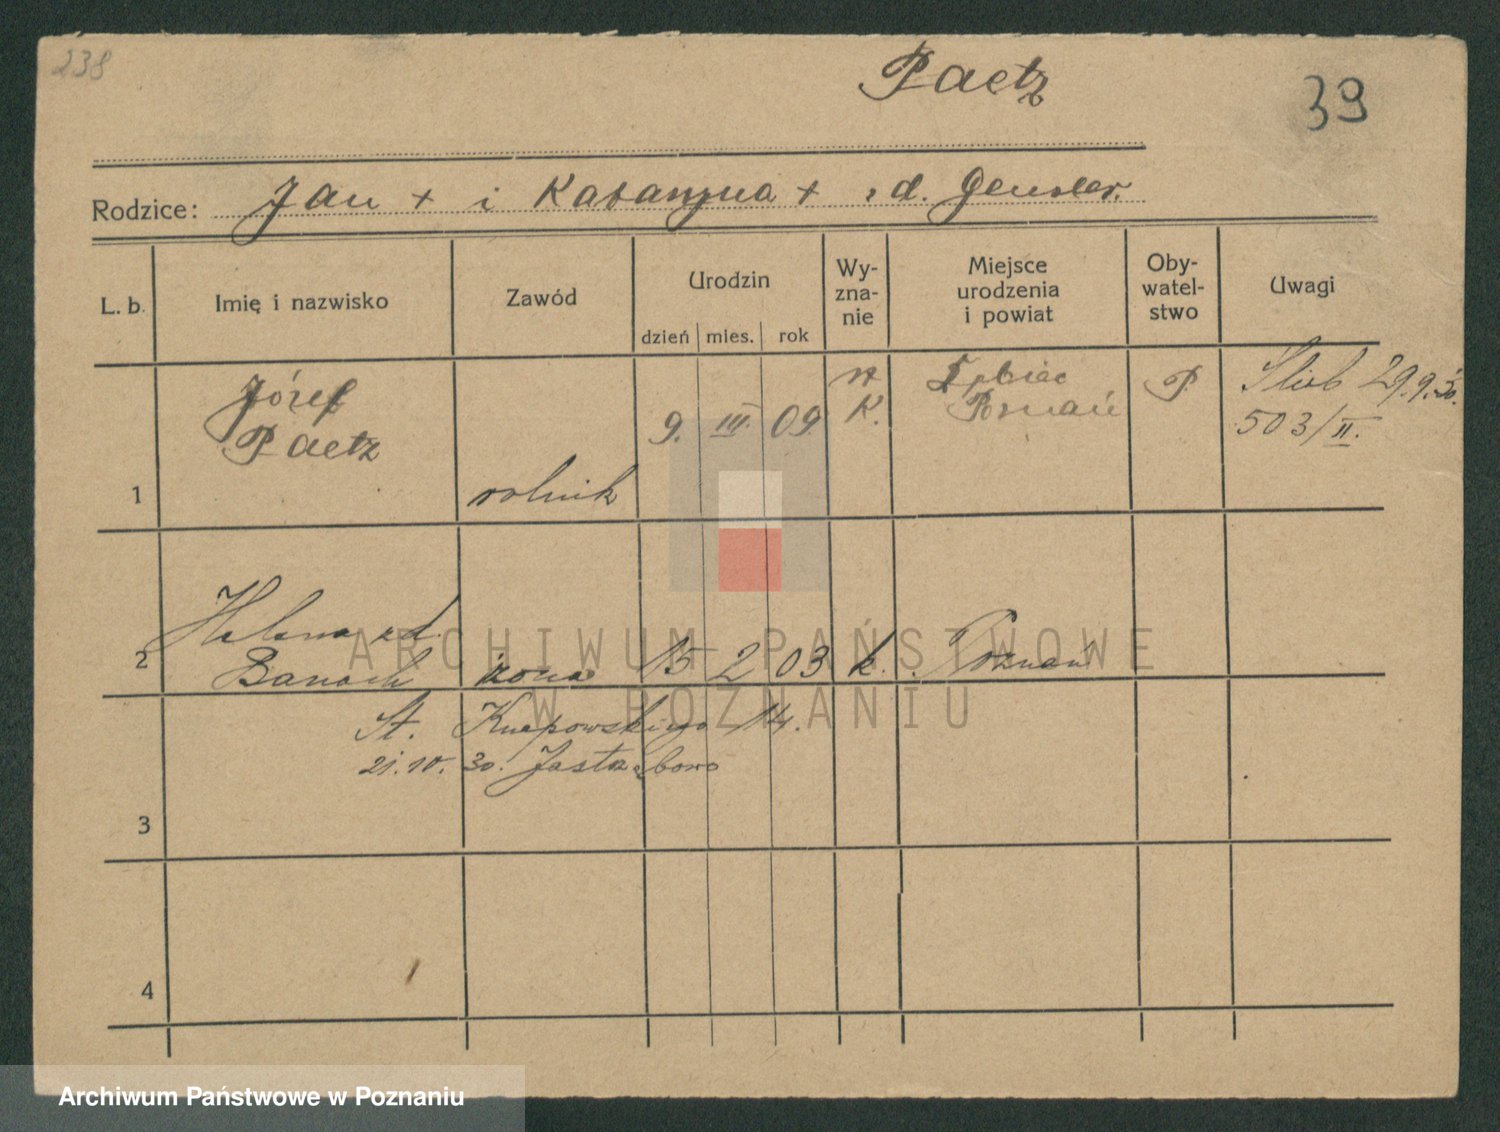 238
Paetz
39
Rodzice: Jan + i Katarzyna + z d. Genser.
L. b.
Imię i nazwisko
Zawód
Urodzin
dzień mies. rok
Wy-
zna-
nie
Miejsce
urodzenia
i powiat
Oby-
watel-
stwo
Uwagi
1
Józef
Paetz
rolnik
9. III. 09.
K.
Poznań
P.
Ślub 29.9.30.
503/II.
2
Helena zd.
Banach
żona
15 2 03
k.
Poznań
St. Knapowskiego 14.
21.10.30. Jastrzębowo
3
4
ARCHIWUM PAŃSTWOWE
W POZNANIU
Archiwum Państwowe w Poznaniu